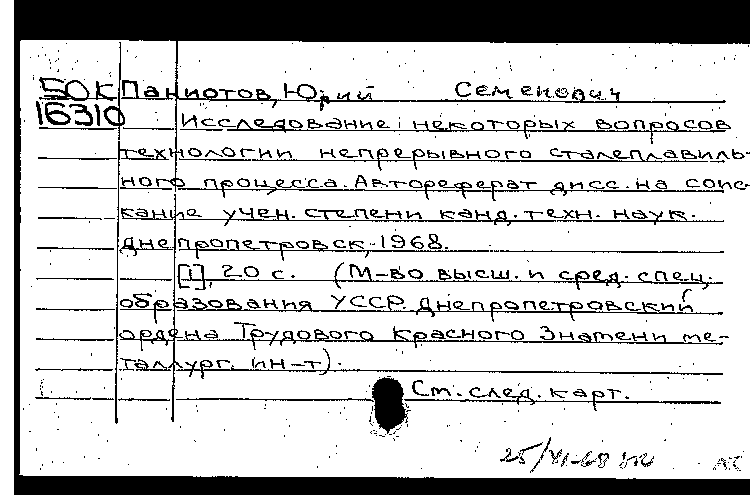 50К Паниотов, Юрий Семенович
16310 Исследование некоторых вопросов
технологии непрерывного сталеплавиль-
ного процесса. Автореферат дисс. на соис-
кание учен. степени канд. техн. наук.
Днепропетровск, 1968.
[1], 20 с. (М-во высш. и сред. спец.
образования УССР. Днепропетровский
ордена Трудового Красного Знамени ме-
таллург. ин-т).
См. след. карт.
25/VI-68